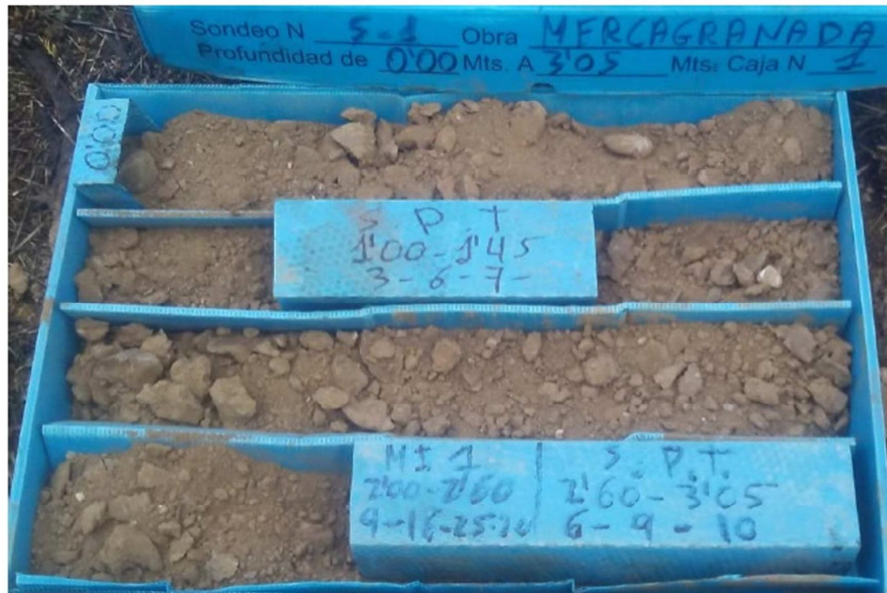 Sondeo N S-1 Obra MERCAGRANADA
Profundidad de 0'00 Mts. A 3'05 Mts. Caja N 1
0'00
S P T
1'00-1'45
3-6-7-
MI 1
2'00-2'60
S. P.T.
2'60-3'05
6-9-10